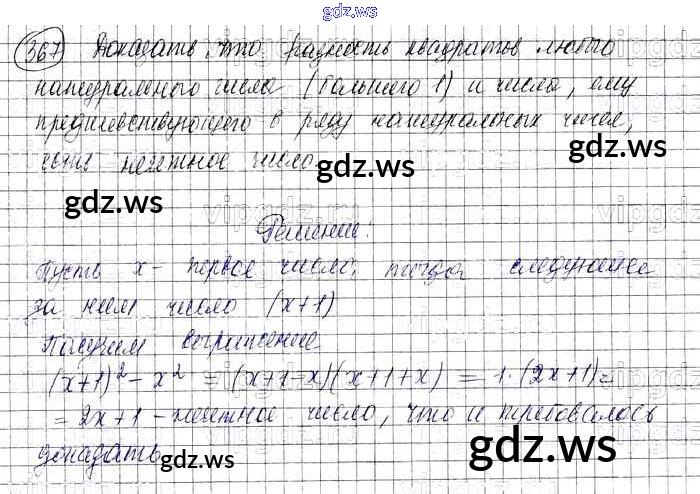 gdz.ws
367 Доказать, что разность квадратов любого
натурального числа (большего 1) и числа, ему
предшествующего в ряду натуральных чисел,
есть нечетное число.
gdz.ws
gdz.ws
gdz.ws
Решение:
Пусть x - первое число, тогда следующее
за ним число (x+1)
Получим выражение
(x+1)² - x² = (x+1-x)(x+1+x) = 1·(2x+1)=
= 2x+1 - нечетное число, что и требовалось
доказать.
gdz.ws
gdz.ws
gdz.ws